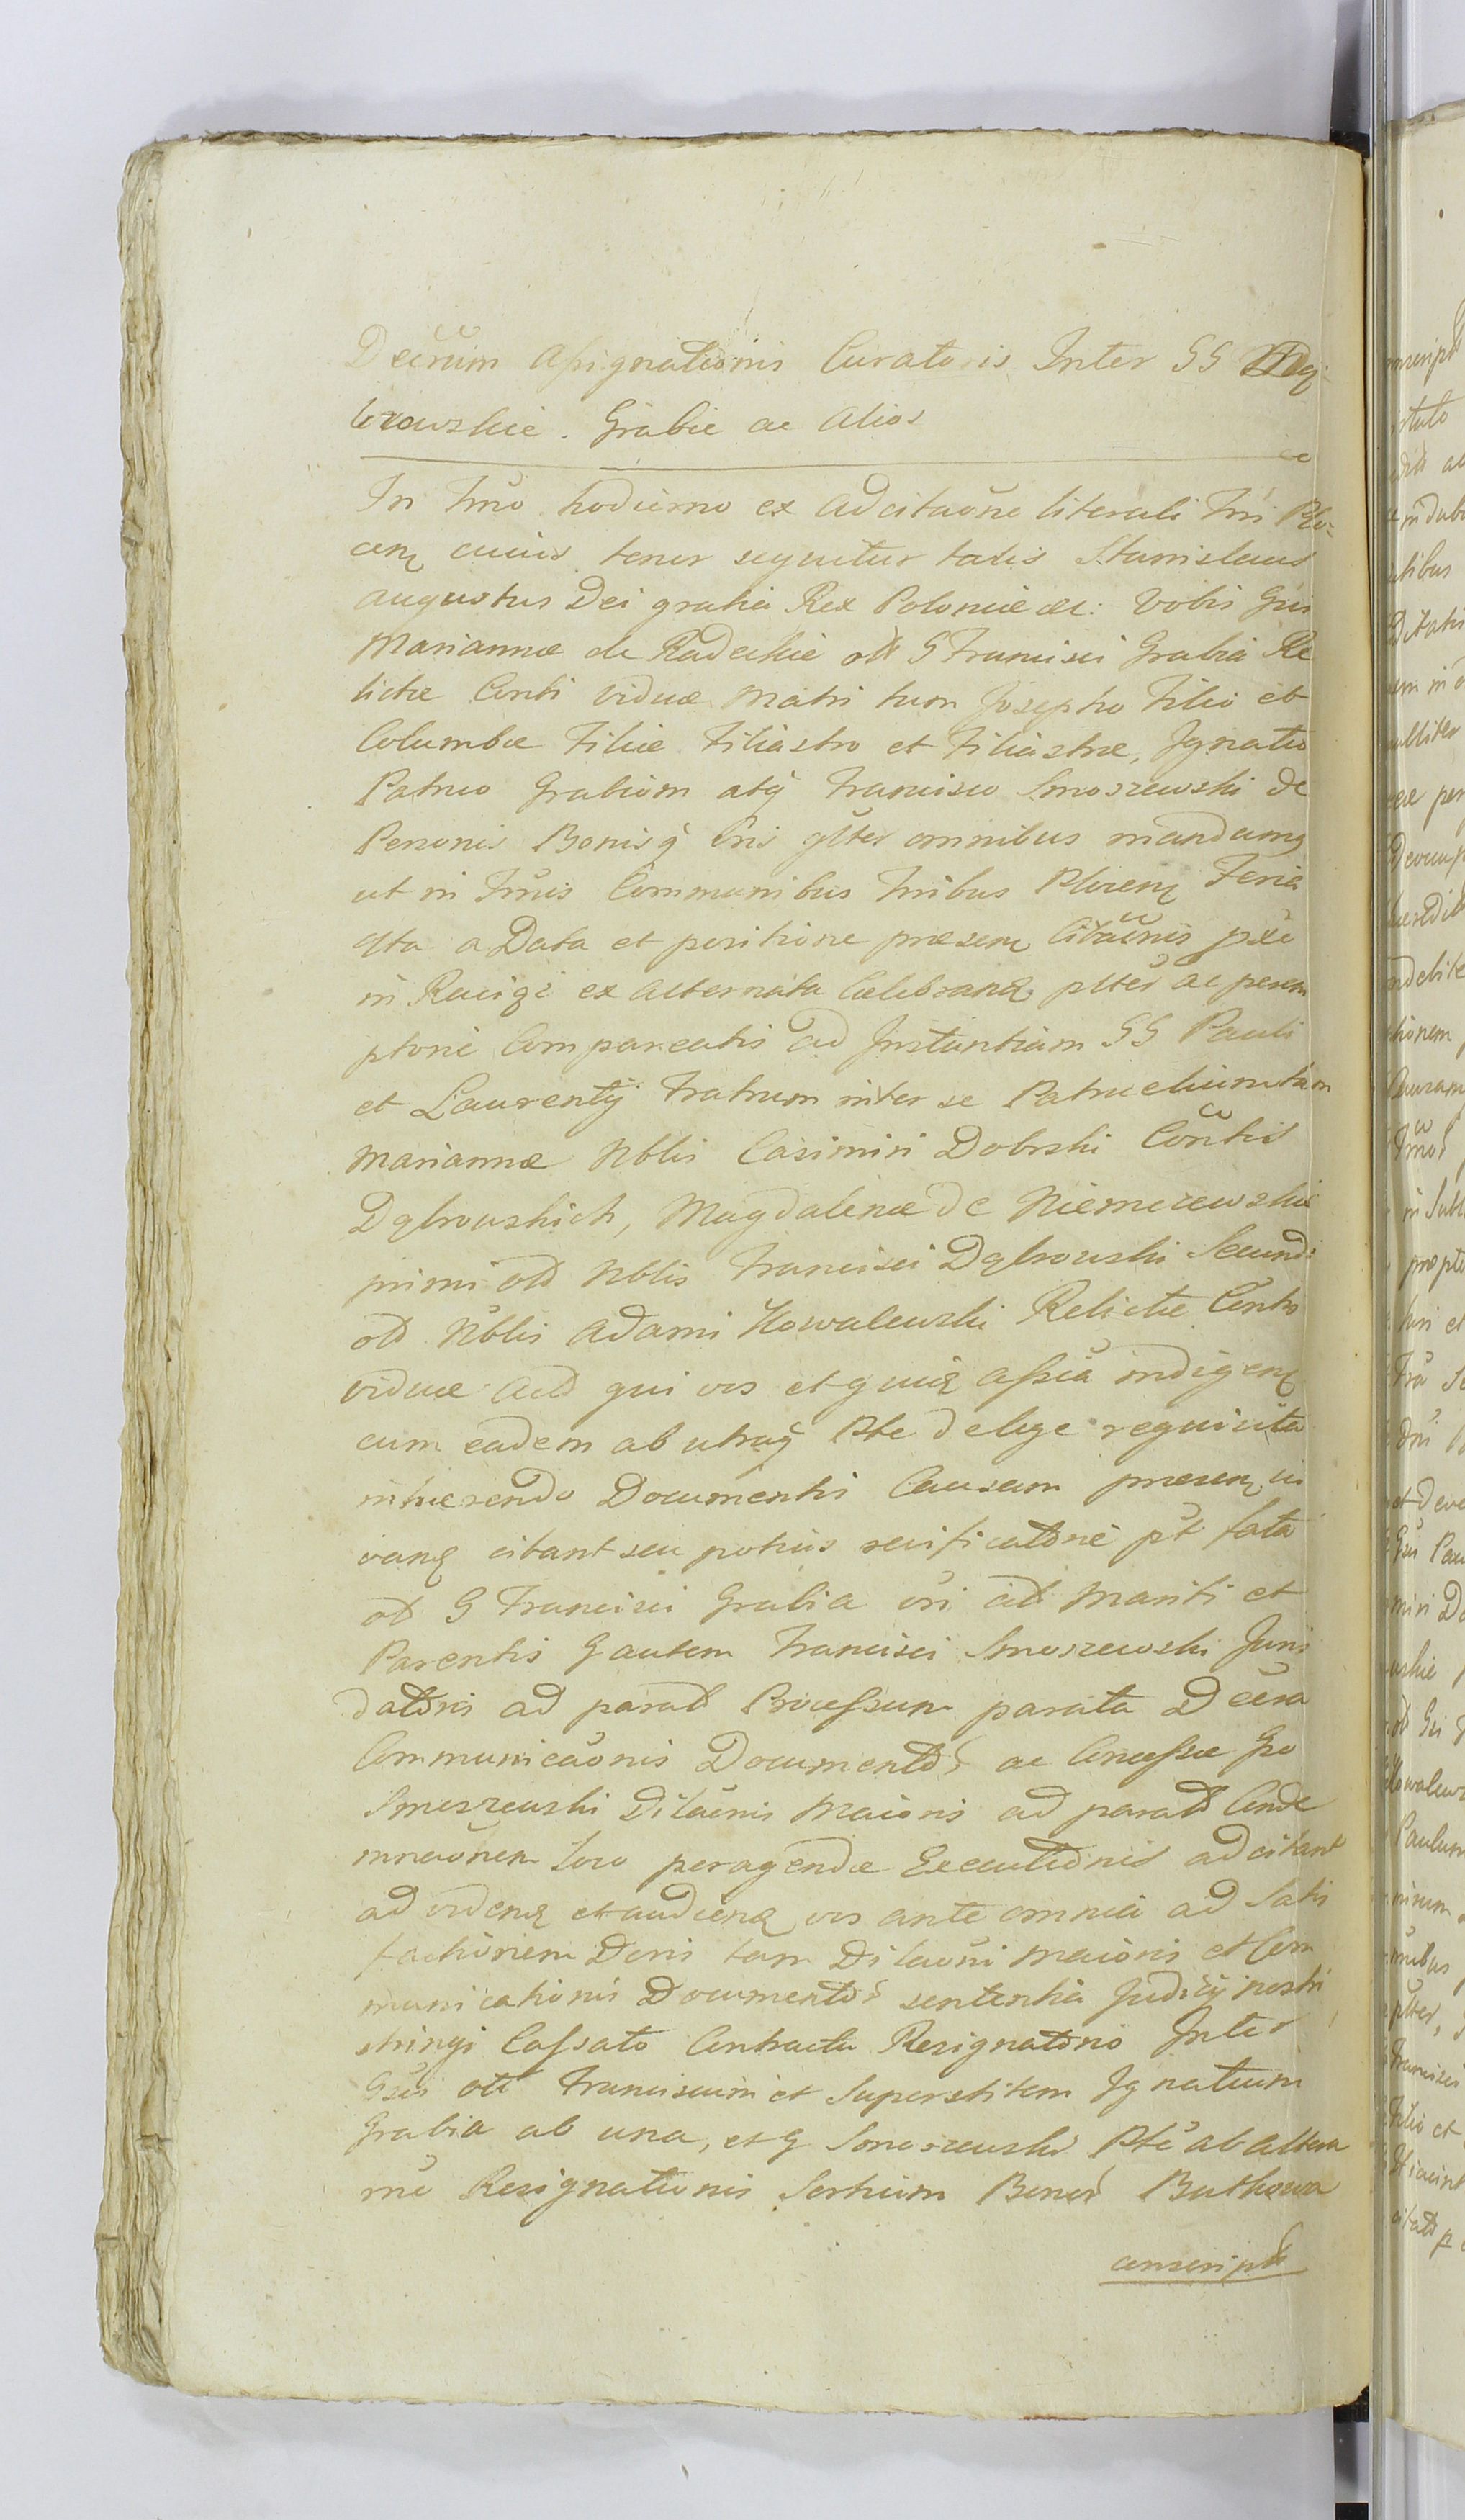 Decrum Assignationis Curatoris Inter GG Dą
browskie. Grabie ac Alios
In Tmo hodierno ex Adcitaõne literali Tri Plo-
cen cuius tenor sequitur talis Stanislaus
Augustus Dei gratia Rex Poloniæ &c: Vobis Gsi
Mariannæ de Radeckie olt G Francisci Grabia Re
lictæ Conti Viduæ Matri tum Josepho Filio et
Columbæ Filiæ Filiastro et Filiastræ, Ignatio
Patruo Grabiom atq Francisco Smoszewski de
Personis Bonisq Vris glter omnibus mandamq
ut in Tmis Communibus Tribus Plocen Feria
qta a Data et positione præsen Citaõnis pxe
in Raciąż ex alternata Celebranq plter ac perem
ptorie Compareatis ad Instantiam GG Pauli
et Laurentij Fratrum inter se Patruelium tum
Mariannæ Nblis Casimiri Dobrski Contis
Dąbrowskich, Magdalenæ de Niemczewskie
primi old Nblis Francisci Dąbrowski Secundi
old Nblis Adami Kowalewski Relictæ Contis
viduæ Actd qui vos et quiq assia indigenq
cum eadem ab utraq Pte de lege requisita
inhærendo Documentis Causam præsen in
vanq citant seu potius reificatõne pt fata
old G Francisci Grabia vri atd Mariti et
Parentis G autem Francisci Smoszewski Juris
datõris ad parad Processum parata Decra
Communicaõnis Documentor ac Concessæ Go
Smoszewski Dilaõnis Maioris ad parad Conde
mnaõnem loco peragendæ Executionis adcitant
ad vidcnq et audienq vos ante omnia ad Satis
factionem Decris tam Dilaõni maioris et Com
municationis Documentor sententia Judicij nostri
stringi Cassato Contractu Resignatõrio Inter
Gsos old Franciscum et Superstitem Ignatium
Grabia ab una, et G Smoszewski Pte ab altera
rne Resignationis Sortium Bonor Buthowa
conscript